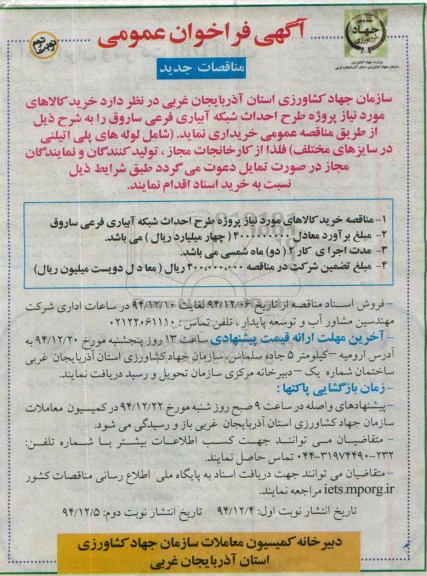 آگهی فراخوان عمومی
مناقصات جدید
نوبت دوم
جهاد
وزارت جهاد کشاورزی
سازمان جهاد کشاورزی استان آذربایجان غربی
سازمان جهاد کشاورزی استان آذربایجان غربی در نظر دارد خرید کالاهای
مورد نیاز پروژه طرح احداث شبکه آبیاری فرعی ساروق را به شرح ذیل
از طریق مناقصه عمومی خریداری نماید. (شامل لوله های پلی اتیلنی
در سایزهای مختلف) فلذا از کارخانجات مجاز ، تولیدکنندگان و نمایندگان
مجاز در صورت تمایل دعوت می گردد طبق شرایط ذیل
نسبت به خرید اسناد اقدام نمایند.
۱- مناقصه خرید کالاهای مورد نیاز پروژه طرح احداث شبکه آبیاری فرعی ساروق
۲- مبلغ برآورد معادل ۴۰۰۰۰۰۰۰۰۰ ( چهار میلیارد ریال ) می باشد.
۳- مدت اجرای کار ۲ ( دو) ماه شمسی می باشد.
۴- مبلغ تضمین شرکت در مناقصه ۲۰۰,۰۰۰,۰۰۰ ریال ( معادل دویست میلیون ریال)
- فروش اسناد مناقصه از تاریخ ۹۴/۱۲/۰۶ لغایت ۹۴/۱۲/۱۰ در ساعات اداری شرکت
مهندسین مشاور آب و توسعه پایدار ، تلفن تماس : ۰۲۱۲۲۰۶۱۱۱۰
- آخرین مهلت ارائه قیمت پیشنهادی ساعت ۱۳ روز پنجشنبه مورخ ۹۴/۱۲/۲۰ به
آدرس ارومیه -کیلومتر ۵ جاده سلماس, سازمان جهادکشاورزی استان آذربایجان غربی
ساختمان شماره یک - دبیرخانه مرکزی سازمان تحویل و رسید دریافت نمایند.
- زمان بازگشایی پاکتها :
- پیشنهادهای واصله در ساعت ۹ صبح روز شنبه مورخ ۹۴/۱۲/۲۲ در کمیسیون معاملات
سازمان جهاد کشاورزی استان آذربایجان غربی باز و رسیدگی می شود.
- متقاضیان می توانند جهت کسب اطلاعات بیشتر با شماره تلفن:
۲۳۲-۰۴۴-۳۱۹۷۴۴۹۰ تماس حاصل نمایند.
- متقاضیان می توانند جهت دریافت اسناد به پایگاه ملی اطلاع رسانی مناقصات کشور
iets.mporg.ir مراجعه نمایند.
تاریخ انتشار نوبت اول: ۹۴/۱۲/۴ تاریخ انتشار نوبت دوم: ۹۴/۱۲/۵
دبیرخانه کمیسیون معاملات سازمان جهاد کشاورزی
استان آذربایجان غربی